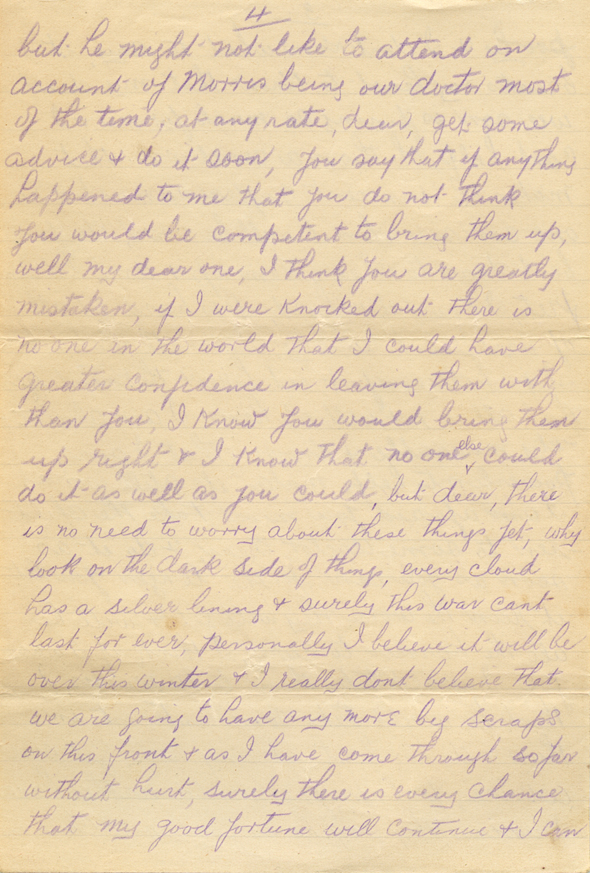 4
but he might not like to attend on
account of Morris being our doctor most
of the time, at any rate, dear, get some
advice & do it soon, you say that if anything
happened to me that you do not think
you would be competent to bring them up,
well my dear one, I think you are greatly
mistaken, if I were knocked out there is
no one in the world that I could have
greater confidence in leaving them with
than you, I know you would bring them
up right & I know that no one else could
do it as well as you could, but dear, there
is no need to worry about these things yet, why
look on the dark side of things, every cloud
has a silver lining & surely this war cant
last for ever, personally I believe it will be
over this winter & I really dont believe that
we are going to have any more big scraps
on this front & as I have come through so far
without hurt, surely there is every chance
that my good fortune will continue & I can